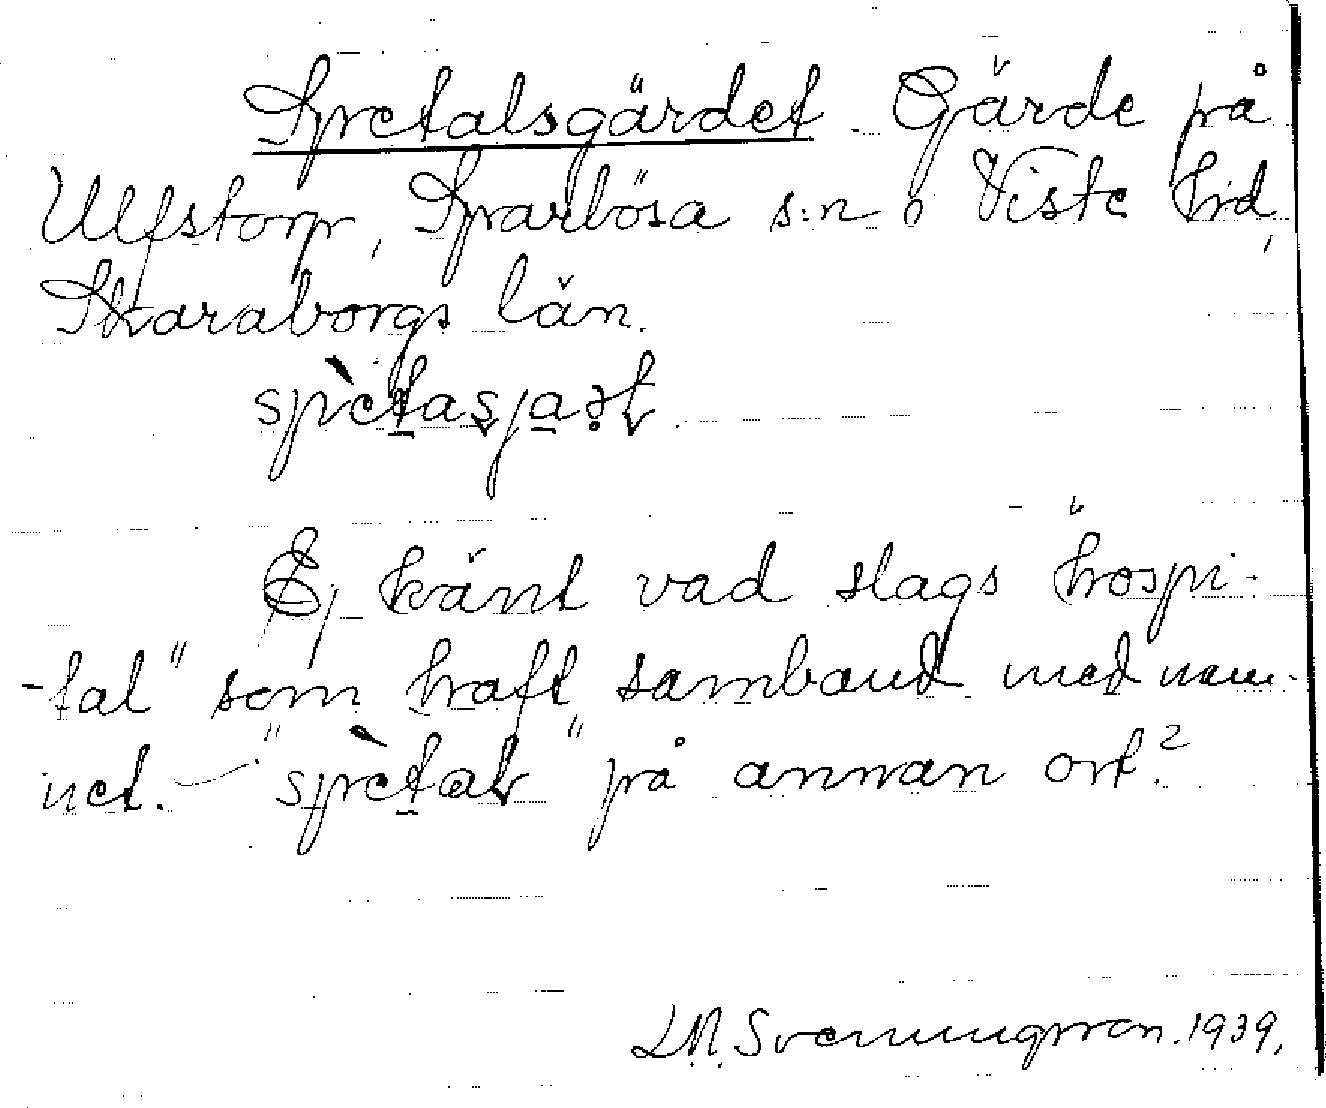 Spetalsgärdet Gärde på
Ulfstorp, Sparlösa s:n i Viste hd,
Skaraborgs län.
Ej känt vad slags "hospi-
-tal" som haft samband med nam-
net. — "spètal" på annan ort?
L.N. Svenungsson. 1939.